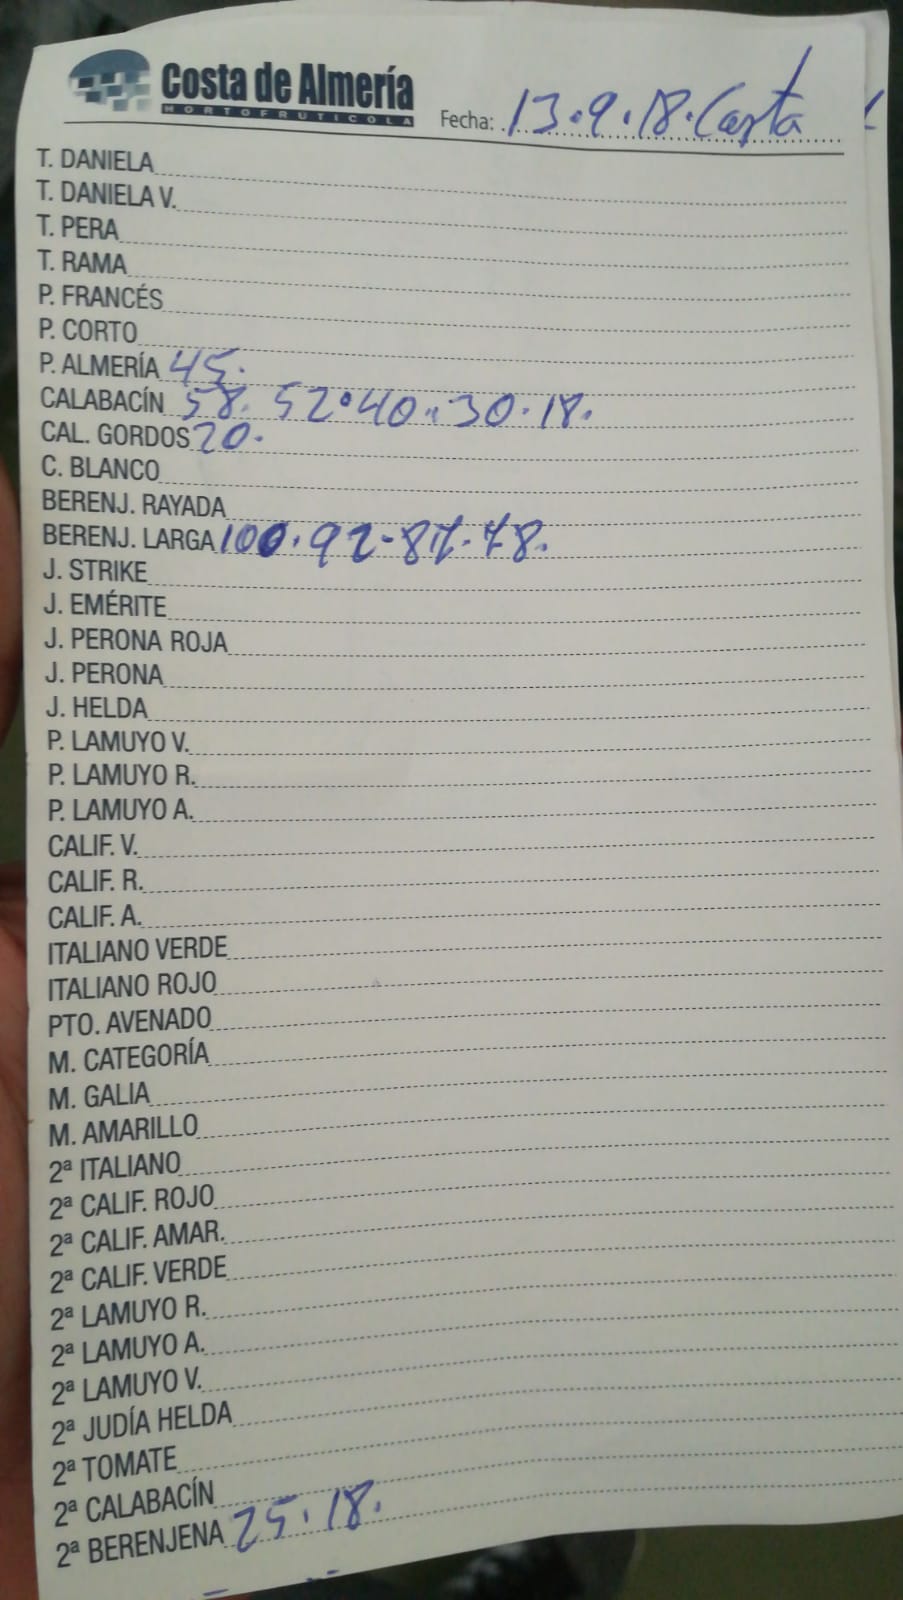 Costa de Almería
HORTOFRUTICOLA
Fecha: 13.9.18. Costa
T. DANIELA
T. DANIELA V.
T. PERA
T. RAMA
P. FRANCÉS
P. CORTO
P. ALMERÍA 45.
CALABACÍN 58. 52.40.30.18.
CAL. GORDOS 20.
C. BLANCO
BERENJ. RAYADA
BERENJ. LARGA 100.92-87.78.
J. STRIKE
J. EMÉRITE
J. PERONA ROJA
J. PERONA
J. HELDA
P. LAMUYO V.
P. LAMUYO R.
P. LAMUYO A.
CALIF. V.
CALIF. R.
CALIF. A.
ITALIANO VERDE
ITALIANO ROJO
PTO. AVENADO
M. CATEGORÍA
M. GALIA
M. AMARILLO
2ª ITALIANO
2ª CALIF. ROJO
2ª CALIF. AMAR.
2ª CALIF. VERDE
2ª LAMUYO R.
2ª LAMUYO A.
2ª LAMUYO V.
2ª JUDÍA HELDA
2ª TOMATE
2ª CALABACÍN
2ª BERENJENA 25.18.